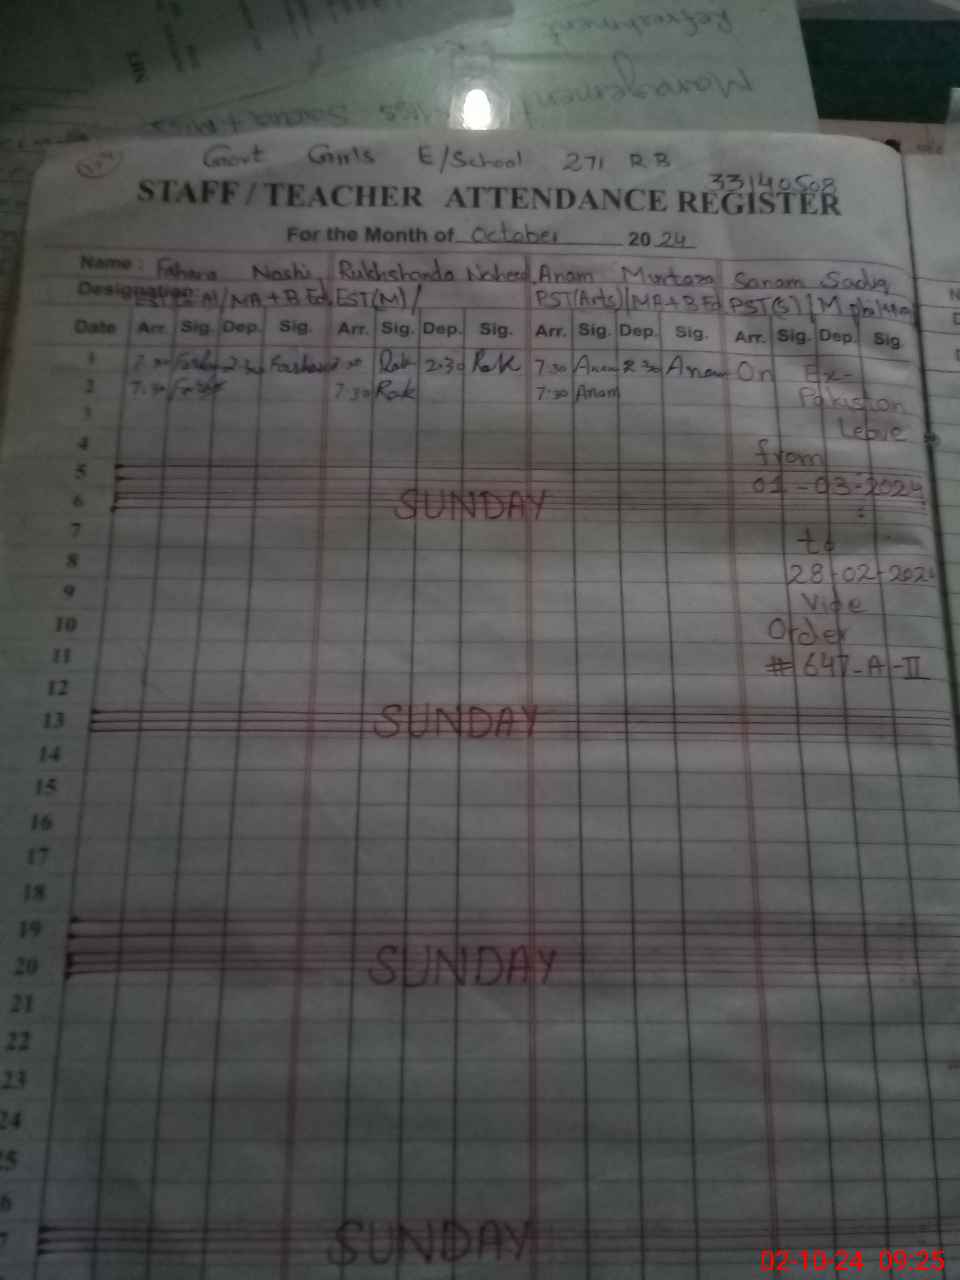 Management Miss Sana + Miss
Refreshment
Govt Girls E/School 271 RB
33140508
STAFF/TEACHER ATTENDANCE REGISTER
For the Month of October 2024
Name: Farhana Rukhshanda Naheed Anam Murtaza Sanam Sadiq
Designation: MA+B.Ed EST(M)/ PST(Arts)/MA+B.Ed PST(S)/M phil
Date Arr. Sig. Dep. Sig. Arr. Sig. Dep. Sig. Arr. Sig. Dep. Sig. Arr. Sig. Dep. Sig.
1 7:30 2:30 7:30 Rak 2:30 Rak 7:30 Anam 2:30 Anam On Ex-
2 7:30 7:30 Rak 7:30 Anam Pakistan
3 Leave
4 from
5 01-03-2024
6 SUNDAY
7 to
8 28-02-202
9 Vide
10 Order
11 # 647-A-II
12
13 SUNDAY
14
15
16
17
18
19
20 SUNDAY
21
22
23
24
5
6
7 SUNDAY
02-10-24 09:25